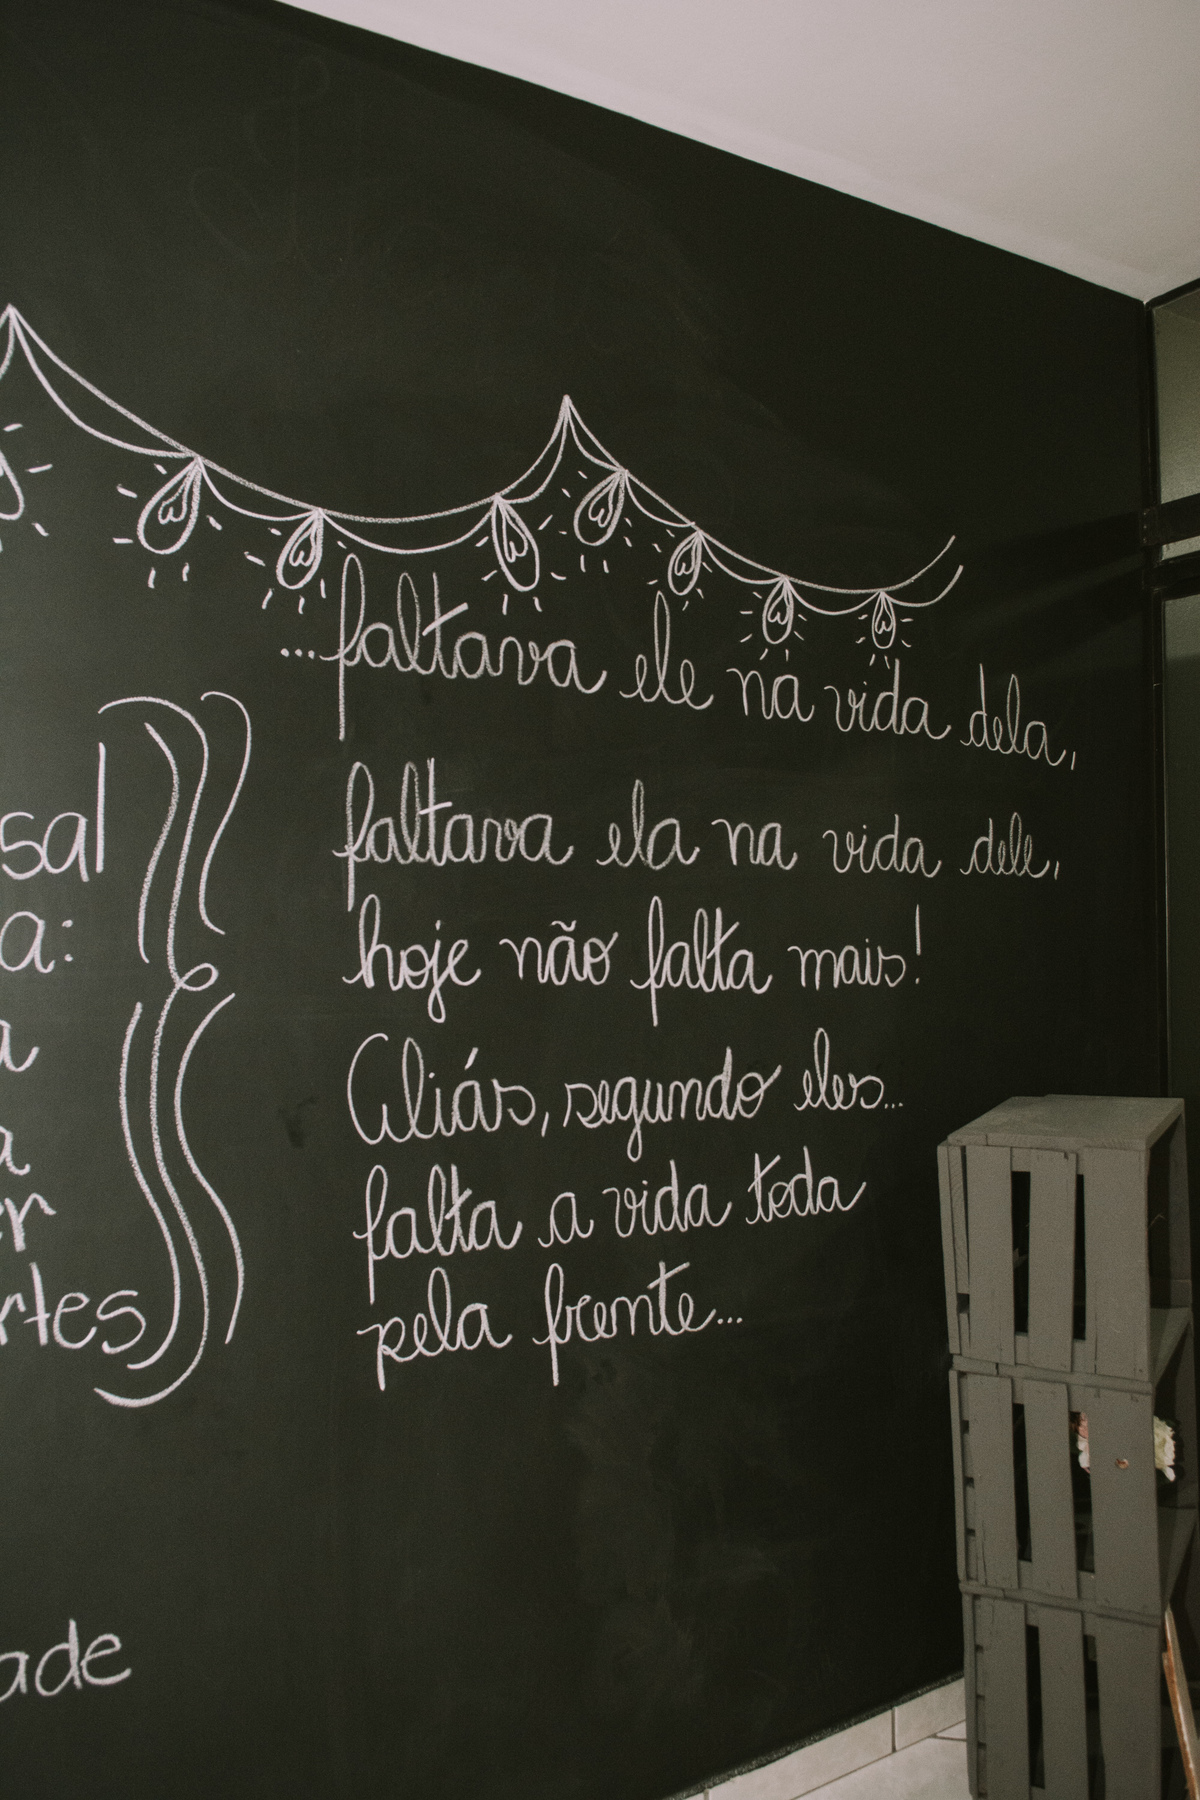 ...faltava ele na vida dela,
faltava ela na vida dele,
hoje não falta mais!
Aliás, segundo eles...
falta a vida toda
pela frente...
sal
a:
a
a
er
rtes
ade